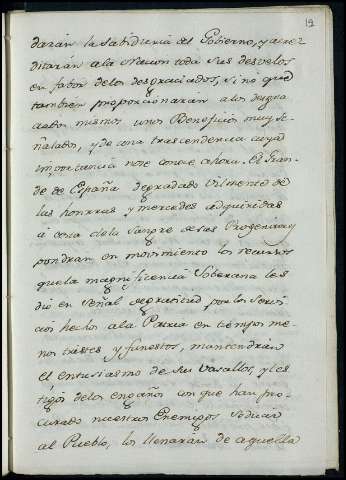 19
darán la Sabiduria del Gobierno, y acre
ditarán a la Nacion toda sus desvelos
en fabor de los desgraciados, sino que
tambien proporcionarán a los desgra
ciados mismos unos Beneficios muy Se
ñalados, y de una trascendencia cuya
importancia no se conoce ahora. El Gran
de de España degradado vilmente de
las honrras y mercedes adquiridas
a costa de la Sangre de sus Progenitores
pondran en movimiento los recursos
que la magnificencia Soberana les
dio en Señal de gratitud por los Servi
cios hechos a la Patria en tiempos me
nos tristes y funestos, mantendrán
el entusiasmo de sus vasallos, y tes
tigos de los engaños con que han pro
curado nuestros Enemigos Seducir
al Pueblo, los llenarán de aquella